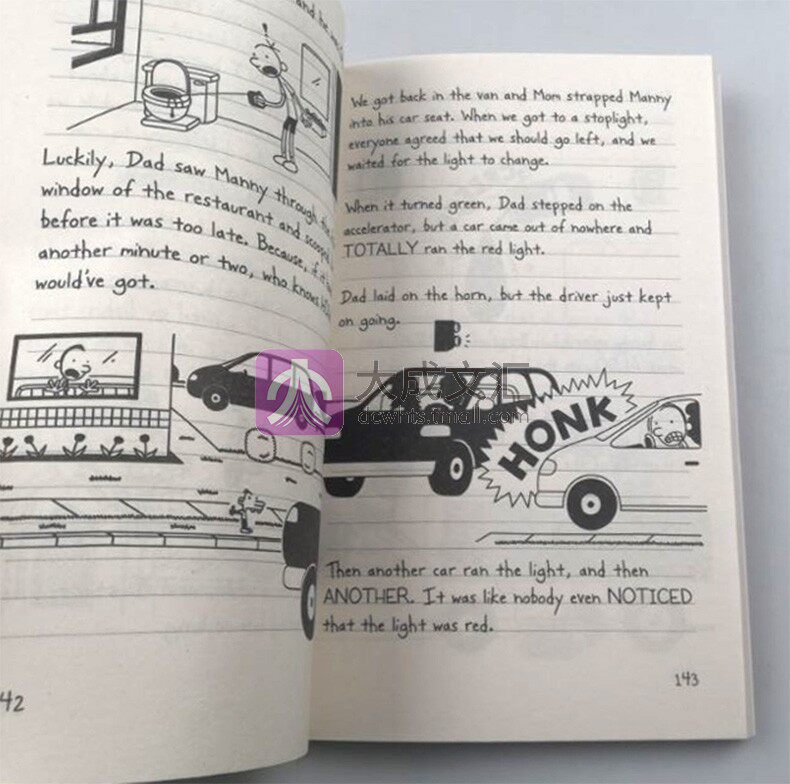 and he
Luckily, Dad saw Manny through the
window of the restaurant and
before it was too late. Because, if
another minute or two, who knows
would've got.
42
We got back in the van and Mom strapped Manny
into his car seat. When we got to a stoplight,
everyone agreed that we should go left, and we
waited for the light to change.
When it turned green, Dad stepped on the
accelerator, but a car came out of nowhere and
TOTALLY ran the red light.
Dad laid on the horn, but the driver just kept
on going.
大成文汇
dcwhts.tmall.com
HONK
Then another car ran the light, and then
ANOTHER. It was like nobody even NOTICED
that the light was red.
143